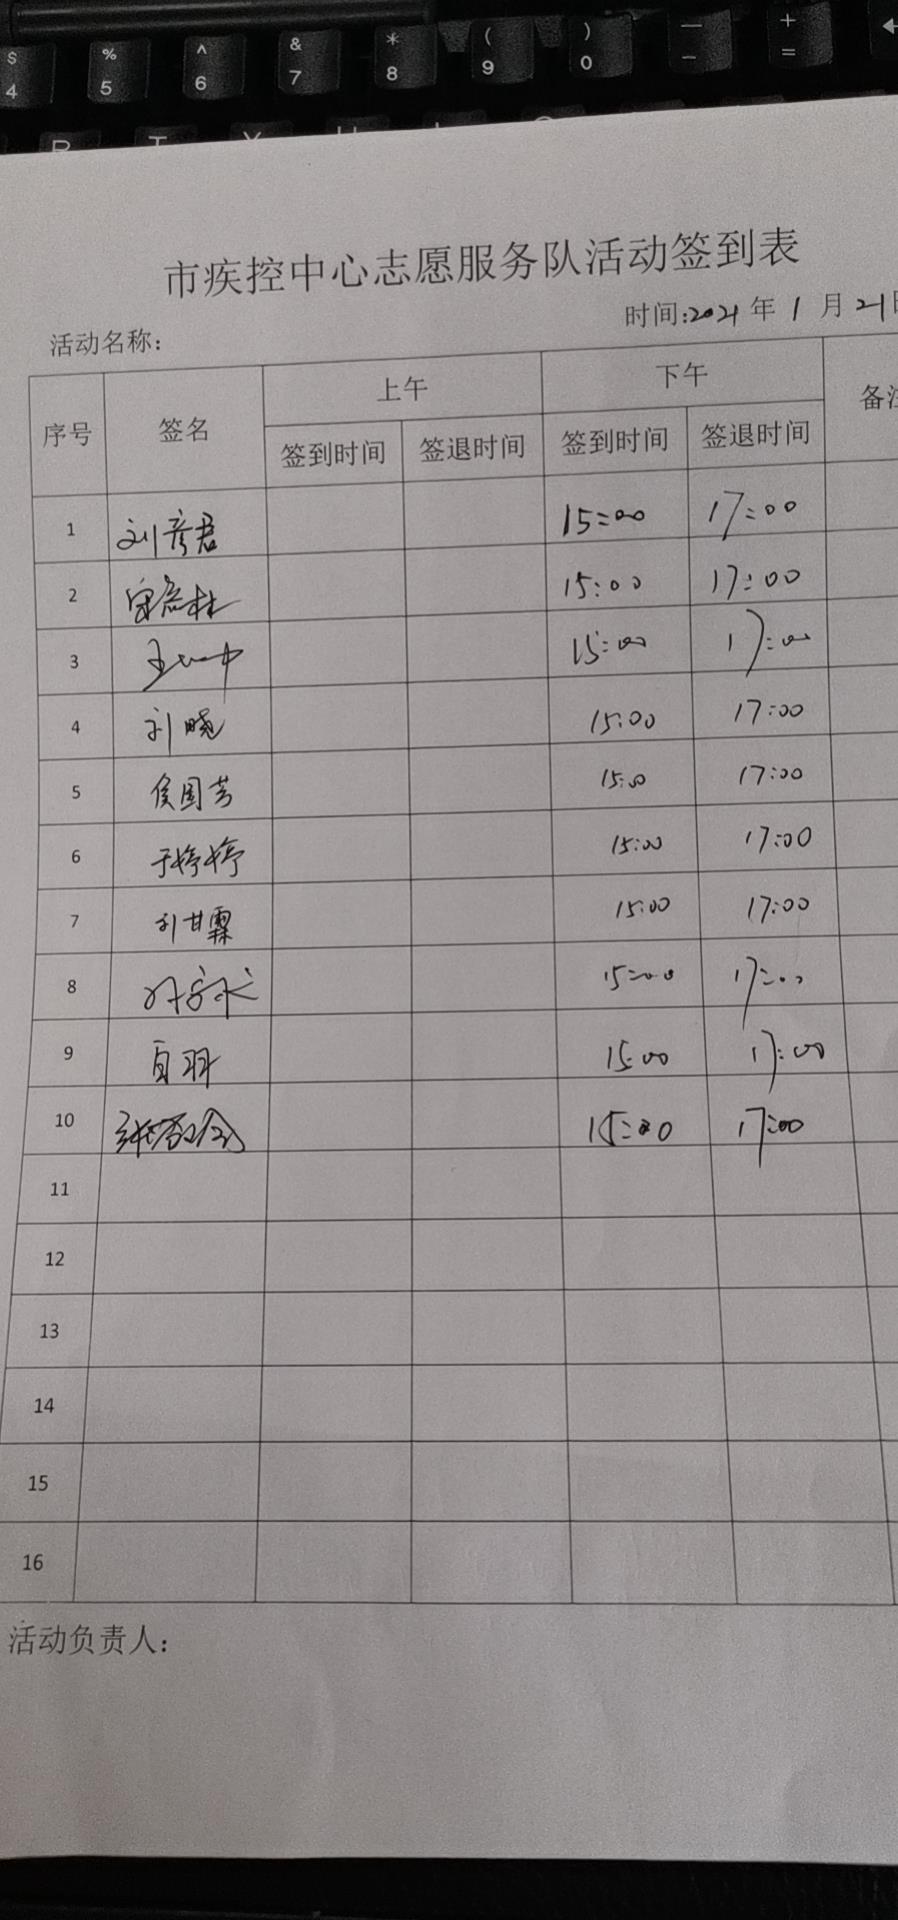 $ % ^ & * ( ) — +
4 5 6 7 8 9 0 - =
R T Y U
市疾控中心志愿服务队活动签到表
时间:2021年1月21日
活动名称：
序号 签名 上午 下午 备注
签到时间 签退时间 签到时间 签退时间
1 刘彦君 15:00 17:00
2 15:00 17:00
3 15:00 17:00
4 刘晓 15:00 17:00
5 侯国芳 15:00 17:00
6 于婷婷 15:00 17:00
7 刘甘霖 15:00 17:00
8 15:00 17:00
9 15:00 17:00
10 15:00 17:00
11
12
13
14
15
16
活动负责人：